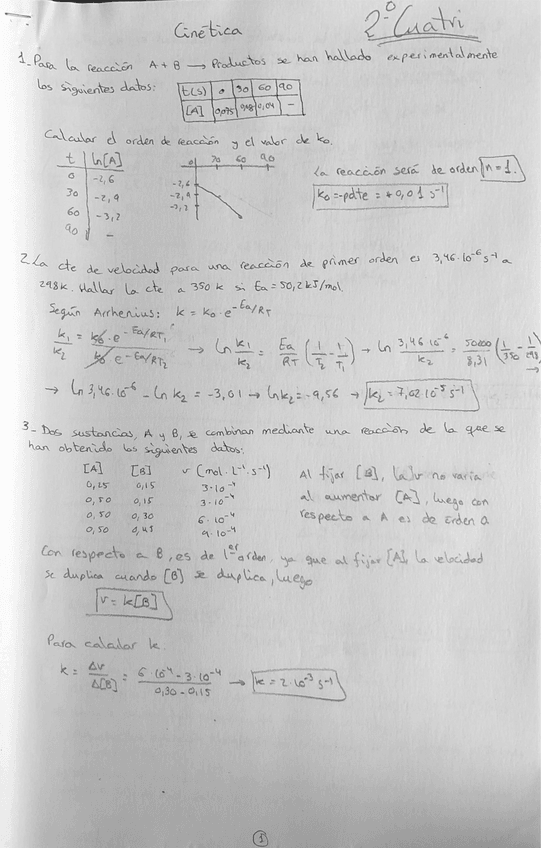 2º Cuatri
Cinética
1. Para la reacción A + B → Productos se han hallado experimentalmente
los siguientes datos:
t(s) 0 30 60 90
[A] 0,075 0,04 -
Calcular el orden de reacción y el valor de k₀.
t ln[A]
0 -2,6
30 -2,9
60 -3,2
90 -
0 30 60 90
-2,6
-2,9
-3,2
La reacción será de orden n = 1.
k₀ = -pdte = +0,01 s⁻¹
2. La cte de velocidad para una reacción de primer orden es 3,46·10⁻⁶ s⁻¹ a
298K. Hallar la cte a 350 K si Ea = 50,2 kJ/mol.
Según Arrhenius: k = k₀ · e^(-Ea/RT)
k₁/k₂ = k₀ · e^(-Ea/RT₁) / k₀ e^(-Ea/RT₂) → ln k₁/k₂ = Ea/R (1/T₂ - 1/T₁) → ln 3,46·10⁻⁶/k₂ = 50200/8,31 (1/350 - 1/298) →
→ ln 3,46·10⁻⁶ - ln k₂ = -3,01 → ln k₂ = -9,56 → k₂ = 7,02·10⁻⁵ s⁻¹
3 - Dos sustancias, A y B, se combinan mediante una reacción de la que se
han obtenido los siguientes datos:
[A] [B] v (mol · L⁻¹ · s⁻¹)
0,25 0,15 3·10⁻⁴
0,50 0,15 3·10⁻⁴
0,50 0,30 6·10⁻⁴
0,50 0,45 9·10⁻⁴
Al fijar [B], la v no varía
al aumentar [A], luego con
respecto a A es de orden 0
Con respecto a B, es de 1er orden, ya que al fijar [A], la velocidad
se duplica cuando [B] se duplica, luego
v = k[B]
Para calcular k.
k = Δv/Δ[B] = 6·10⁻⁴ - 3·10⁻⁴ / 0,30 - 0,15 → k = 2·10⁻³ s⁻¹
1